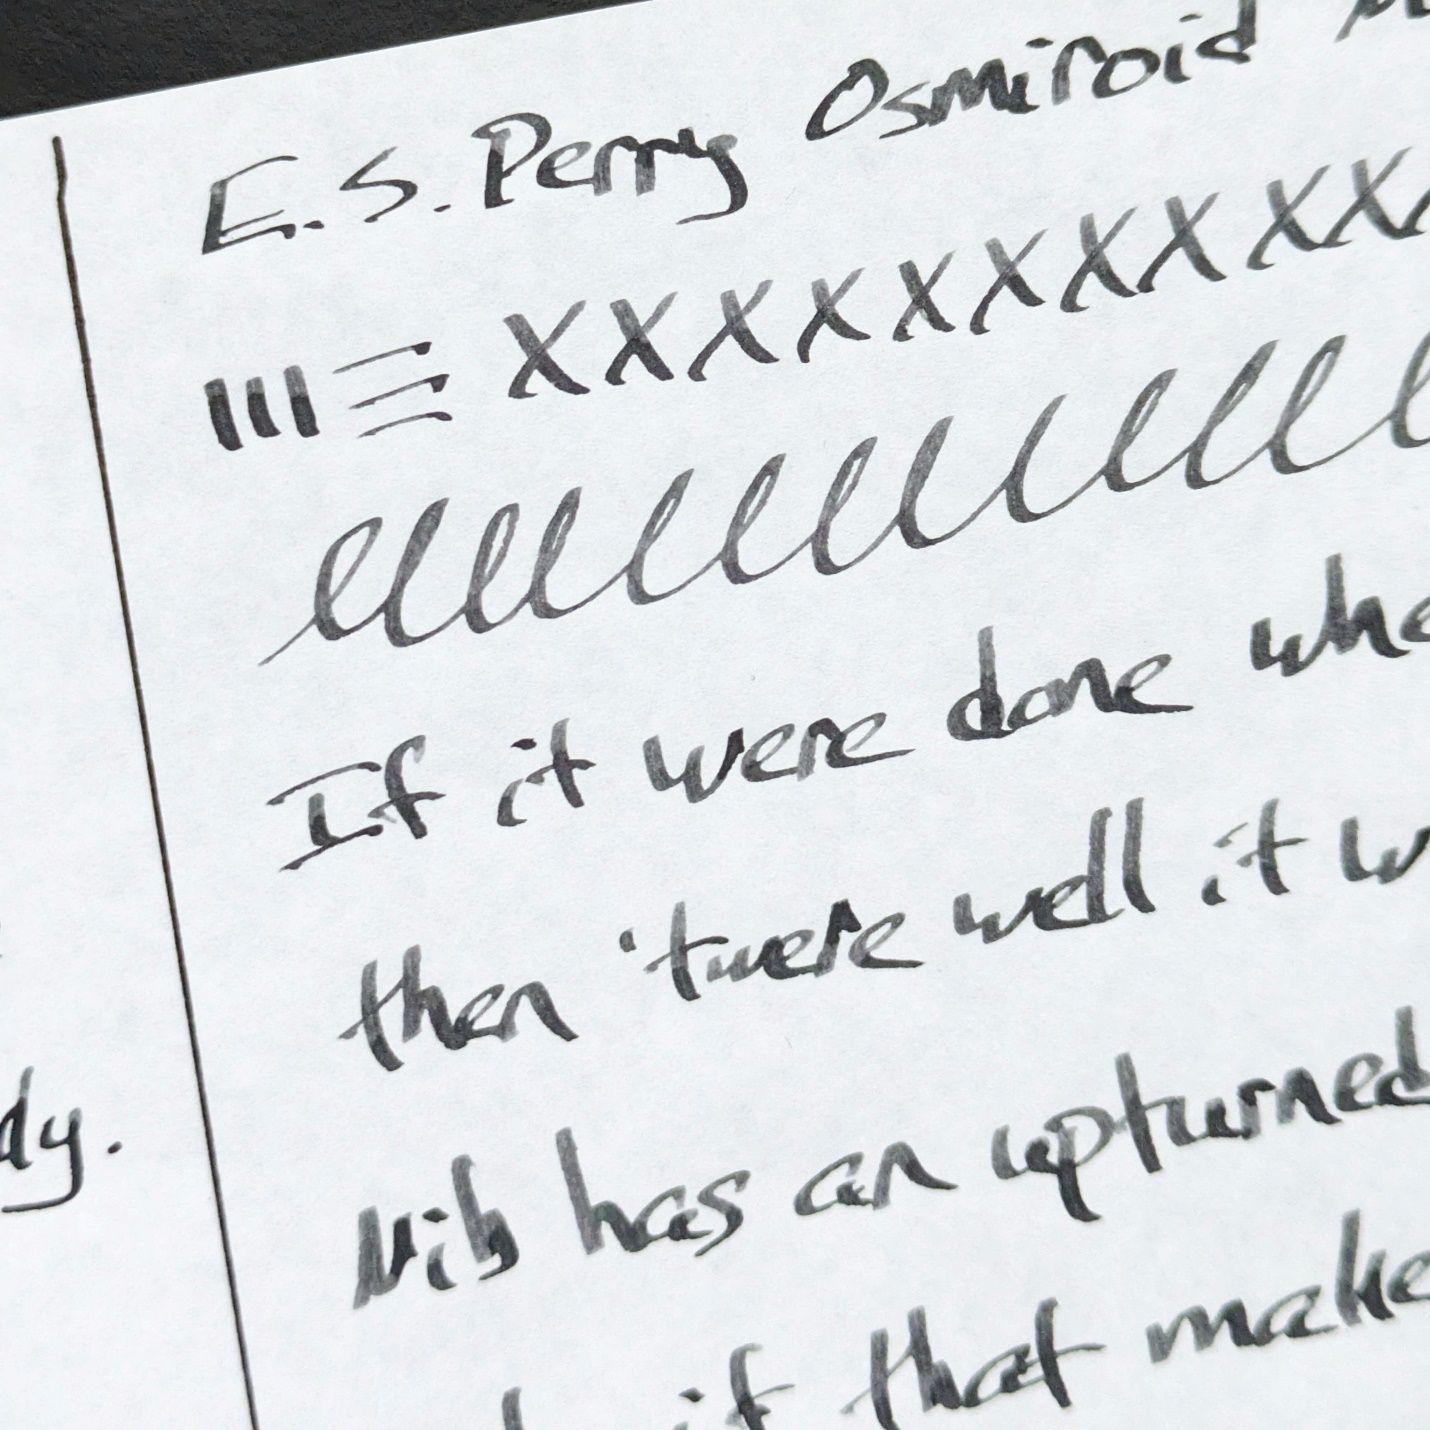 E.S. Perry Osmiroid
III ☰ X X X X X X X X X X X
llllllllllllll
If it were done whe
then 'twere well it w
dy.
Nib has an upturned
it that make